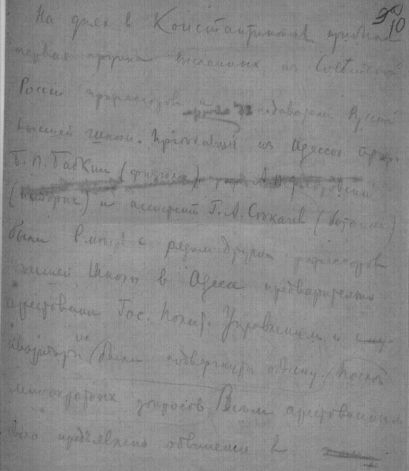 10
На днях в Константинополь прибыла
первая группа высланных из Советской
России профессоров и преподавателей Русской
высшей школы. Прибывший из Одессы проф.
Б. П. Бабкин (физиолог) А. В. Флоровский
(историк) и ассистент Г. А. Секачев (ботаник)
были вместе с рядом других профессоров
высшей школы в Одессе предварительно
арестованы Гос. Полит. Управлением и
были подвергнуты обыску. После
многократных допросов Всем арестованным
было предъявлено обвинение в